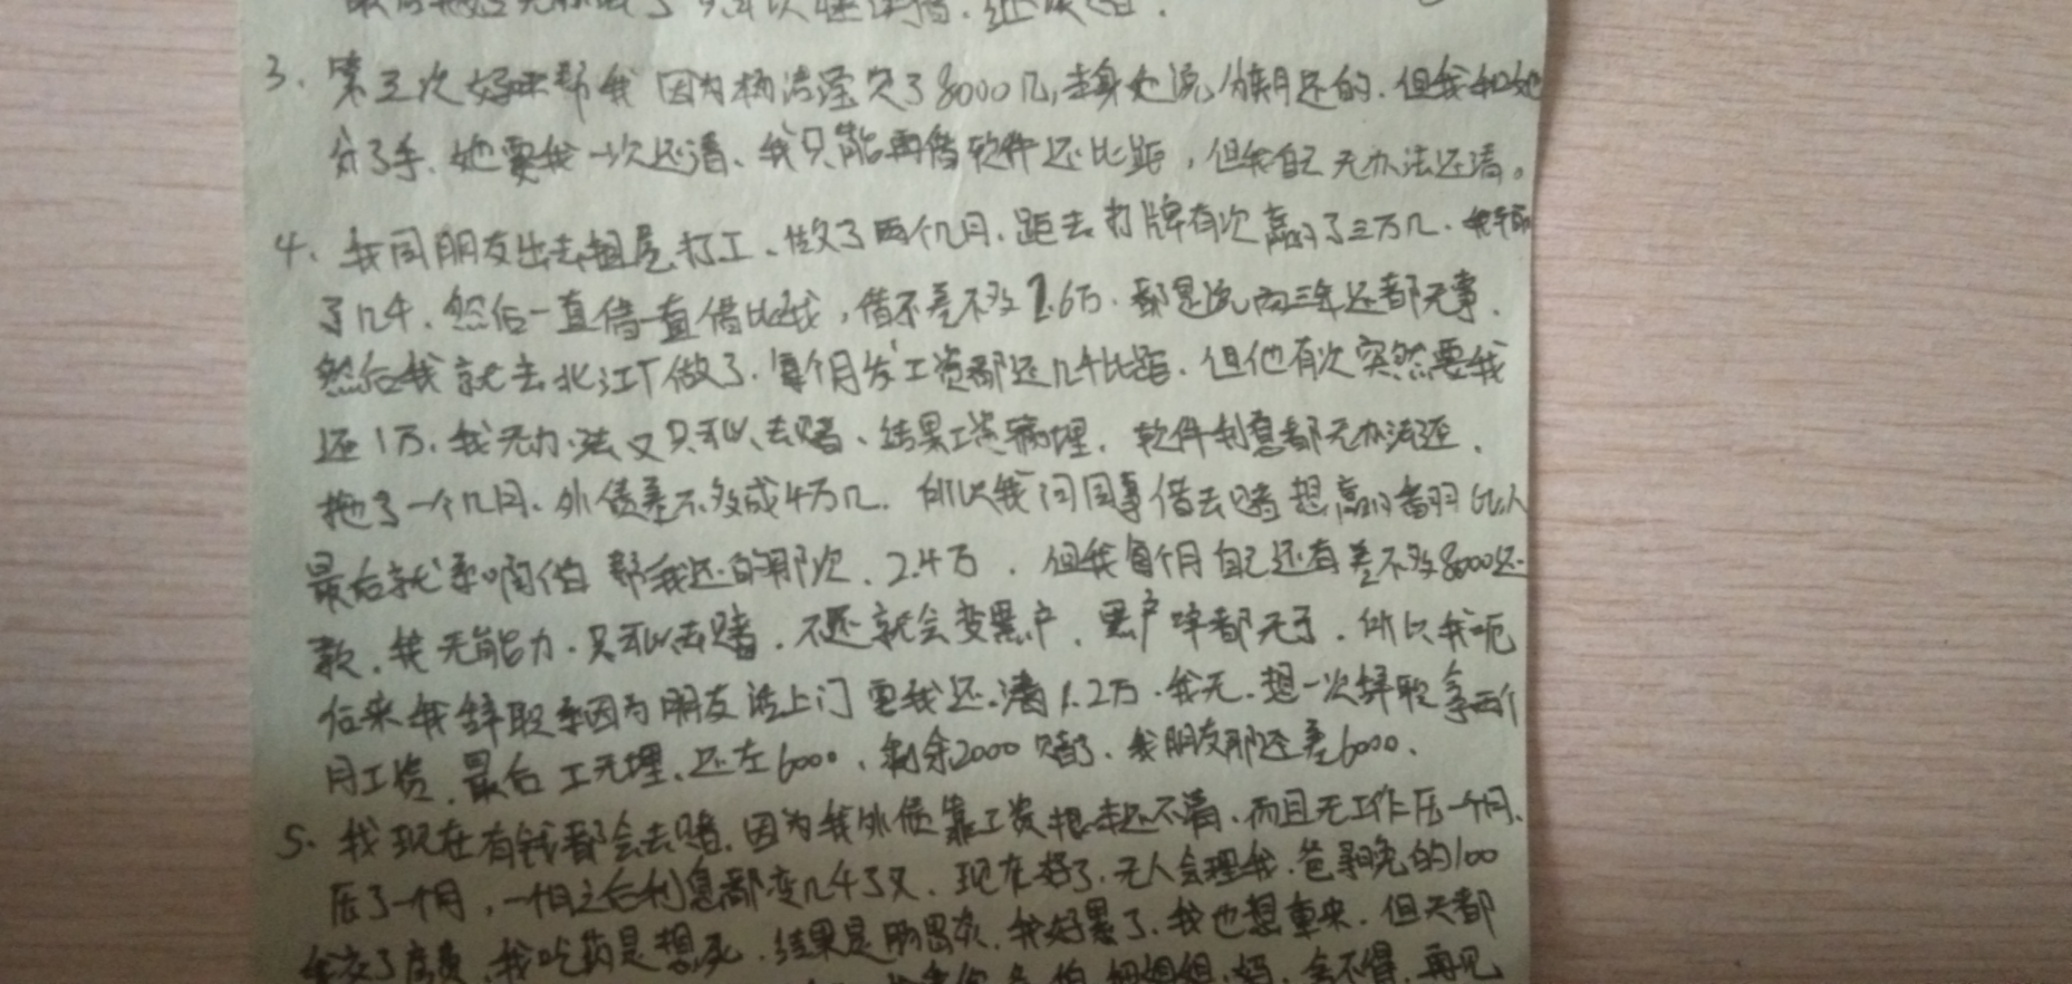 3、第三次好来帮我 因为杨洁滢欠了8000几,去身她说分期月还的.但我和她
分了手、她要我一次还清、我只能再借软件还比距,但我自己无办法还清。
4、我同朋友出去租屋打工、做了两个几月.距去打牌有次赢了三万几.我
了几千.然后一直借一直借比我,借不差不多2.6万.都是说两三年还都无事.
然后我就去北江厂做了.每个月发工资都还几千比距.但他有次突然要我
还1万.我无办法又只可以去赌、结果工资 埋.软件利息都无办法还.
拖了一个几月、外债差不多成4万几.所以我问同事借去赌想赢翻比人
最后就系 伯帮我还的那次.2.4万.但我每个月自己还有差不多8000还
款.我无能力.只可以去赌.不还就会变黑户.黑户咩都无了.所以我呃
后来我辞职系因为朋友 上门要我还清1.2万.我无.想一次辞职拿两个
月工资.最后工无埋.还左6000.剩余2000赌了.我朋友那还差6000.
5、我现在有钱都会去赌.因为我外债靠工资根本还不清.而且无工作压一个月.
压了一个月,一个月之后利息都变几千了又.现在好了.无人会理我.爸 的100
我交了房费.我吃药是想死.结果是肠胃炎.我好累了.我也想重来.但天都
伯 姐姐 妈.舍不得.再见